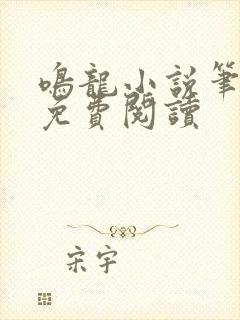 鳴龍小說筆
免費閱讀
宋宇